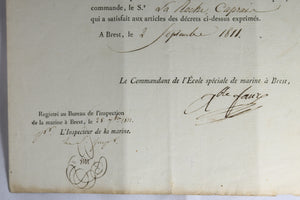 commande, le S.r La Roche Caprair
qui a satisfait aux articles des décrets ci-dessus exprimés.
A Brest, le 2 Septembre 1811.
Le Commandant de l'École spéciale de marine à Brest,
Registré au Bureau de l'inspection
de la marine à Brest, le 28 7bre 1811.
L'Inspecteur de la marine.